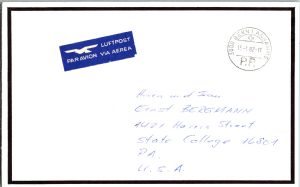 LUFTPOST
PAR AVION VIA AEREA
3000 BERN 1
P.P.
Herrn und Frau
Ernst BERGMANN
1421 Harris Street
State College 16801
PA.
U.S.A